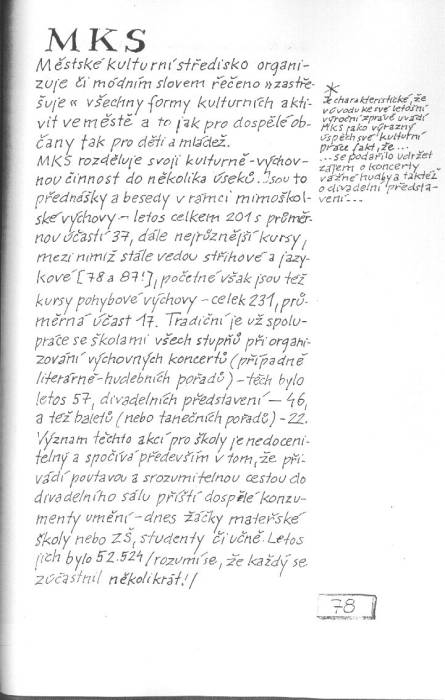 MKS
Městské kulturní středisko organi-
zuje či módním slovem řečeno »zastře-
šuje« všechny formy kulturních akti-
vit ve městě a to jak pro dospělé ob-
čany tak pro děti a mládež.
MKS rozděluje svoji kulturně-výchov-
nou činnost do několika úseků. Jsou to
přednášky a besedy v rámci mimoškol-
ské výchovy – letos celkem 201 s průměr-
nou účastí 37, dále nejrůznější kursy,
mezi nimiž stále vedou střihové a jazy-
kové [78 a 87!], početné však jsou též
kursy pohybové výchovy – celek 231, prů-
měrná účast 17. Tradiční je už spolu-
práce se školami všech stupňů při organi-
zování výchovných koncertů (případně
literárně-hudebních pořadů) – těch bylo
letos 57, divadelních představení – 46,
a též baletů (nebo tanečních pořadů) – 22.
Význam těchto akcí pro školy je nedoceni-
telný a spočívá především v tom, že při-
vádí poutavou a srozumitelnou cestou do
divadelního sálu příští dospělé konzu-
menty umění – dnes žáčky mateřské
školy nebo ZŠ, studenty či učně. Letos
jich bylo 52.524 /rozumí se, že každý se
zúčastnil několikrát!/
*
Je charakteristické, že
v úvodu ke své letošní
výroční zprávě uvádí
MKS jako výrazný
úspěch své kulturní
práce fakt, že...
...se podařilo udržet
zájem o koncerty
vážné hudby a taktéž
o divadelní předsta-
vení...
78